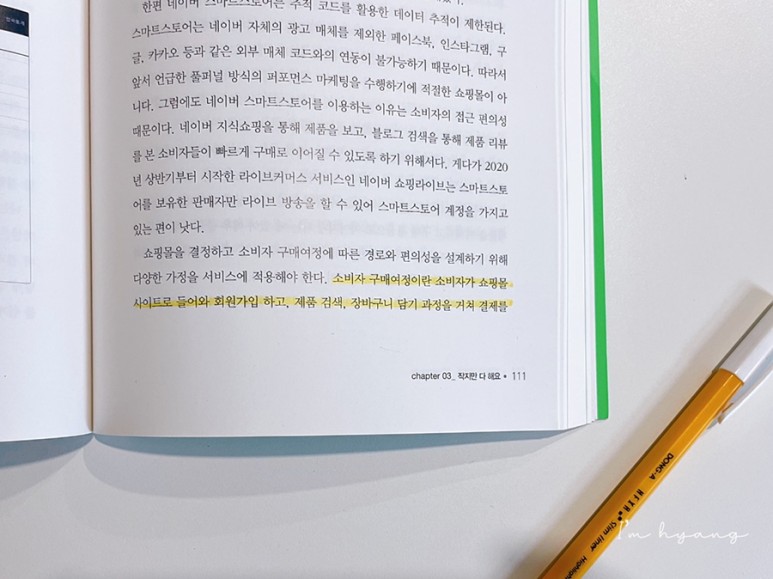 한편 네이버 스마트스토어는 추적 코드를 활용한 데이터 추적이 제한된다.
스마트스토어는 네이버 자체의 광고 매체를 제외한 페이스북, 인스타그램, 구
글, 카카오 등과 같은 외부 매체 코드와의 연동이 불가능하기 때문이다. 따라서
앞서 언급한 풀퍼널 방식의 퍼포먼스 마케팅을 수행하기에 적절한 쇼핑몰이 아
니다. 그럼에도 네이버 스마트스토어를 이용하는 이유는 소비자의 접근 편의성
때문이다. 네이버 지식쇼핑을 통해 제품을 보고, 블로그 검색을 통해 제품 리뷰
를 본 소비자들이 빠르게 구매로 이어질 수 있도록 하기 위해서다. 게다가 2020
년 상반기부터 시작한 라이브커머스 서비스인 네이버 쇼핑라이브는 스마트스토
어를 보유한 판매자만 라이브 방송을 할 수 있어 스마트스토어 계정을 가지고
있는 편이 낫다.
쇼핑몰을 결정하고 소비자 구매여정에 따른 경로와 편의성을 설계하기 위해
다양한 가정을 서비스에 적용해야 한다. 소비자 구매여정이란 소비자가 쇼핑몰
사이트로 들어와 회원가입 하고, 제품 검색, 장바구니 담기 과정을 거쳐 결제를
chapter 03_ 작지만 다 해요 • 111
DONG-A
Slim liner Highlighter
I'm hyang